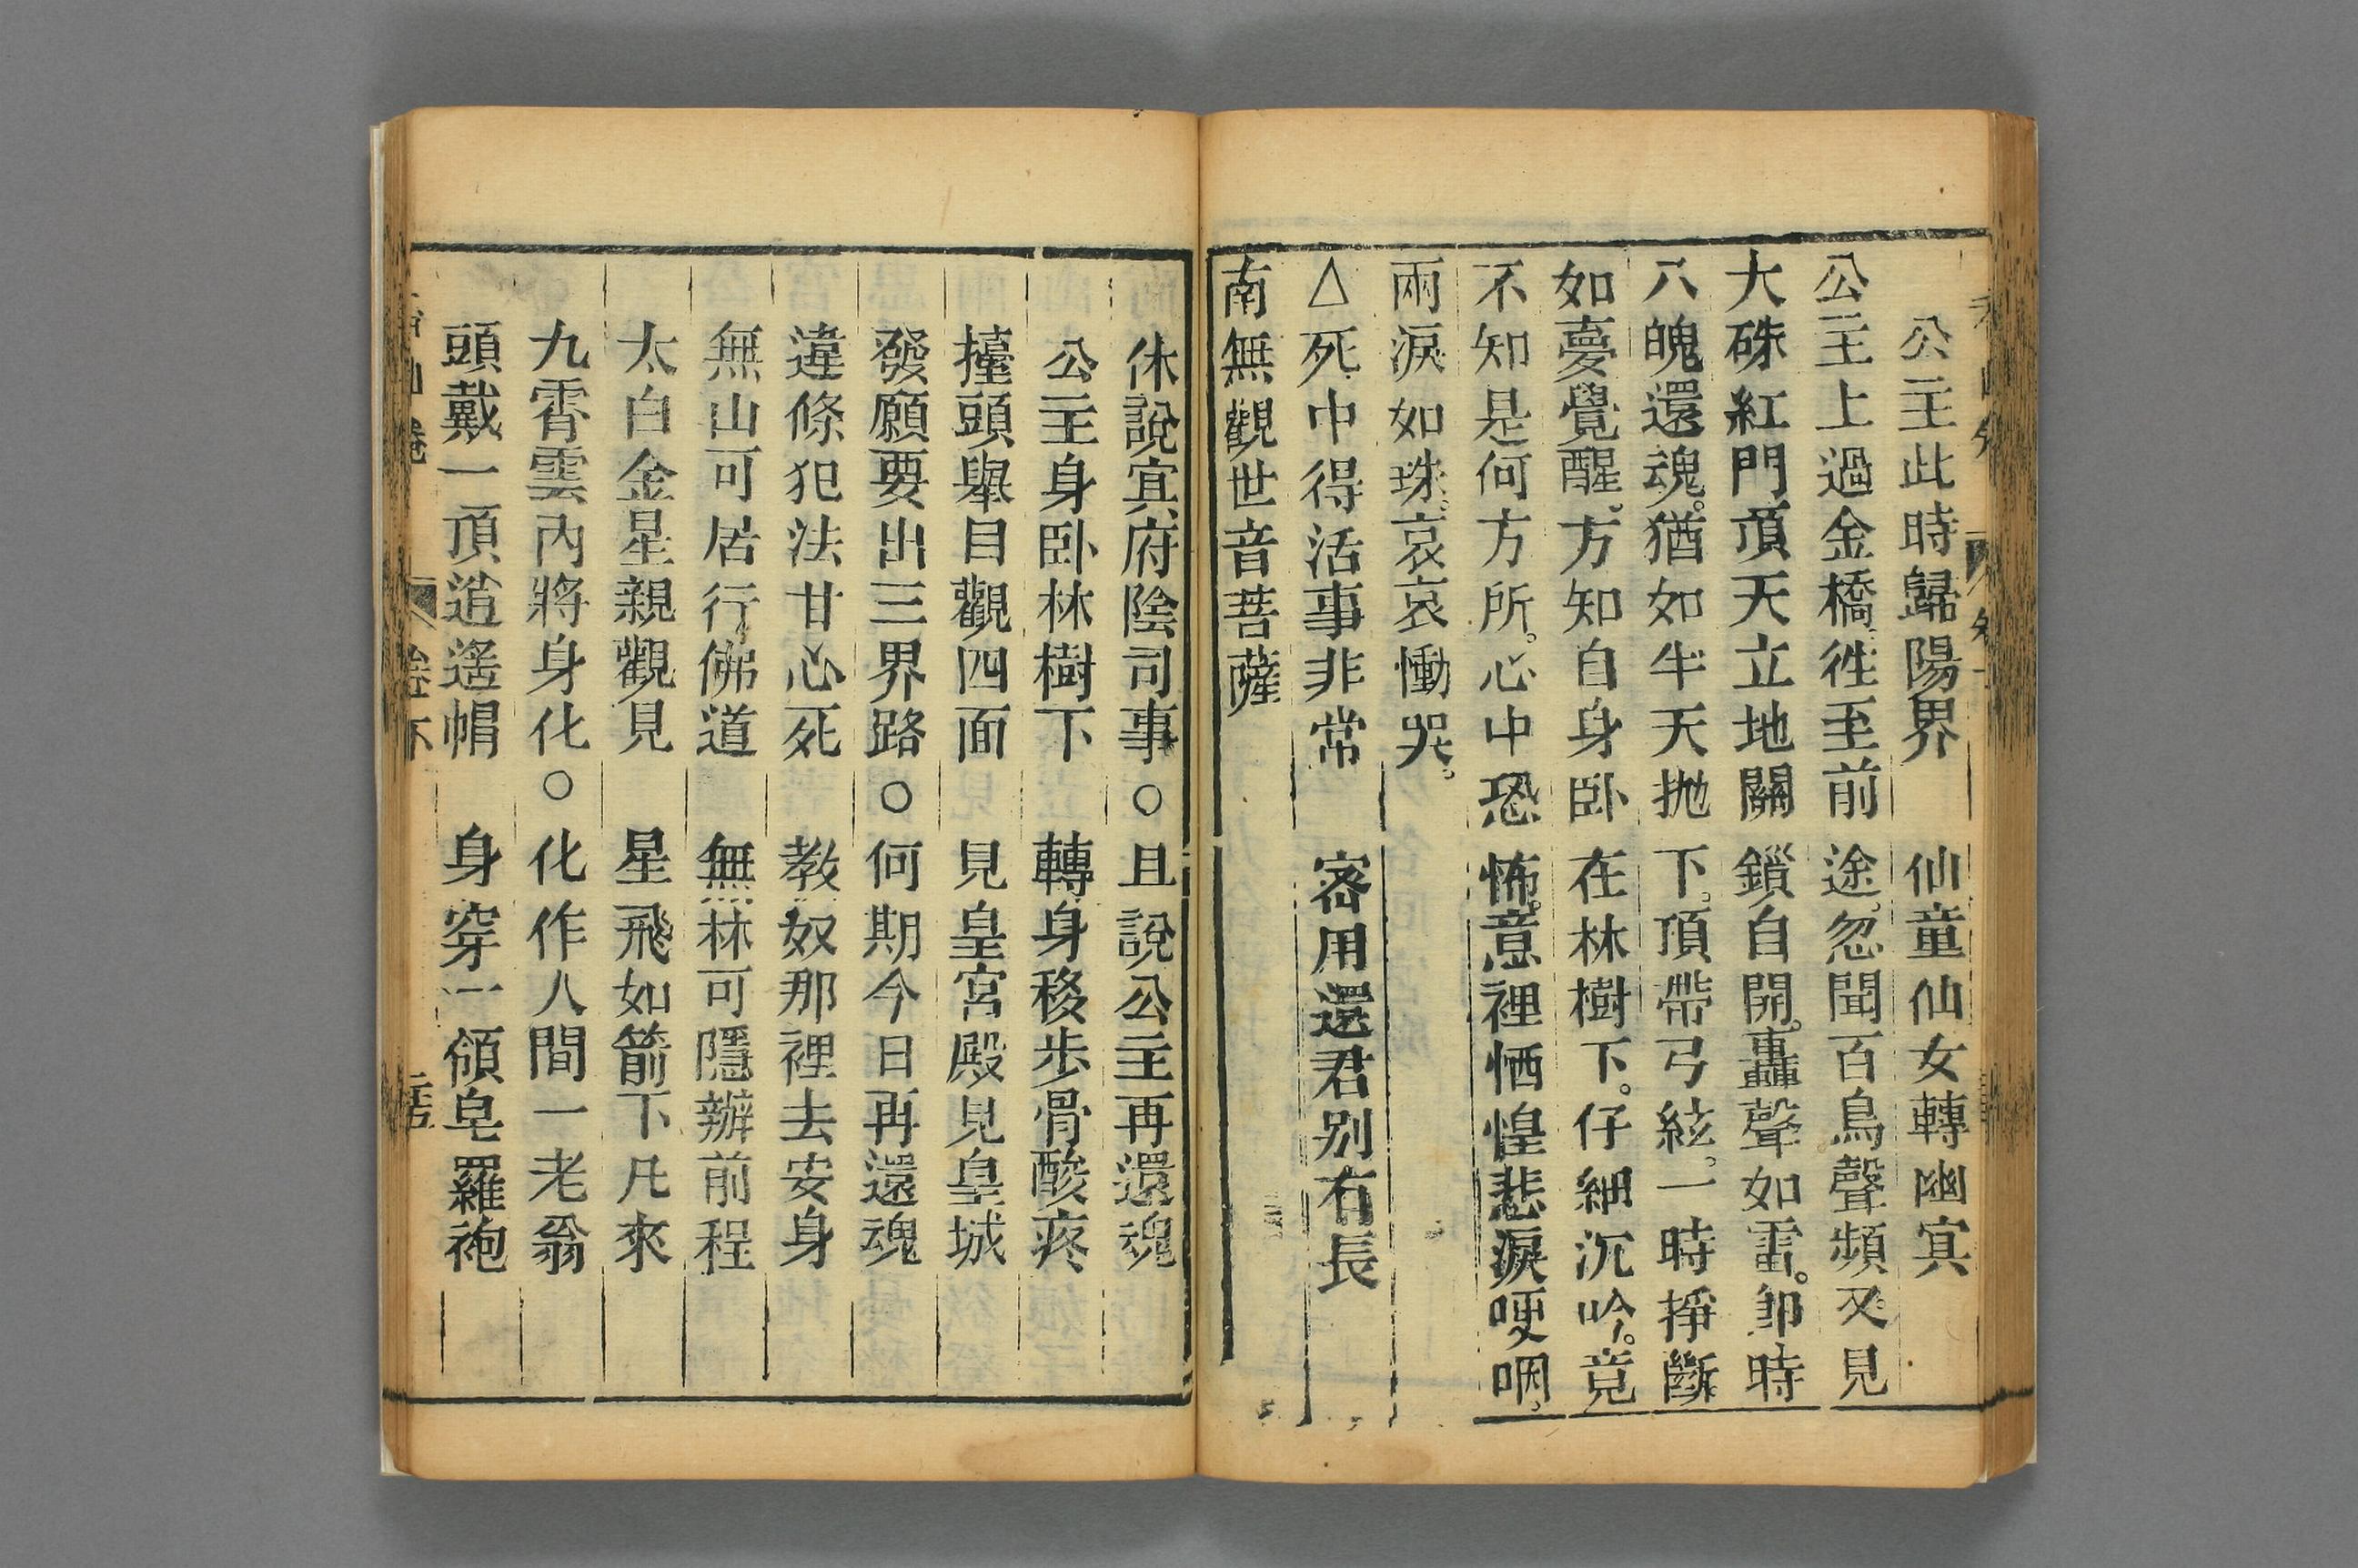 公主此時歸陽界　仙童仙女轉幽冥
公主上過金橋。徃至前途。忽聞百鳥聲頻。又見
大硃紅門。頂天立地。關鎖自開。轟聲如雷。卽時
八魄還魂。猶如半天拋下。頂帶弓絃。一時掙斷
如夢覺醒。方知自身卧在林樹下。仔細沉吟。竟
不知是何方所。心中恐怖。意裡恓惶。悲淚哽咽。
兩淚如珠。哀哀慟哭。
△死中得活事非常　宻用還君別有長
南無觀世音菩薩
休說㝠府陰司事○且說公主再還魂
公主身卧林樹下　轉身移步骨酸疼
擡頭舉目觀四面　見皇宮殿見皇城
發願要出三界路○何期今日再還魂
違條犯法甘心死　教奴那裡去安身
無山可居行佛道　無林可隱辦前程
太白金星親觀見　星飛如箭下凡來
九霄雲內將身化○化作人間一老翁
頭戴一頂逍遙帽　身穿一領皂羅袍
山卷　卷下